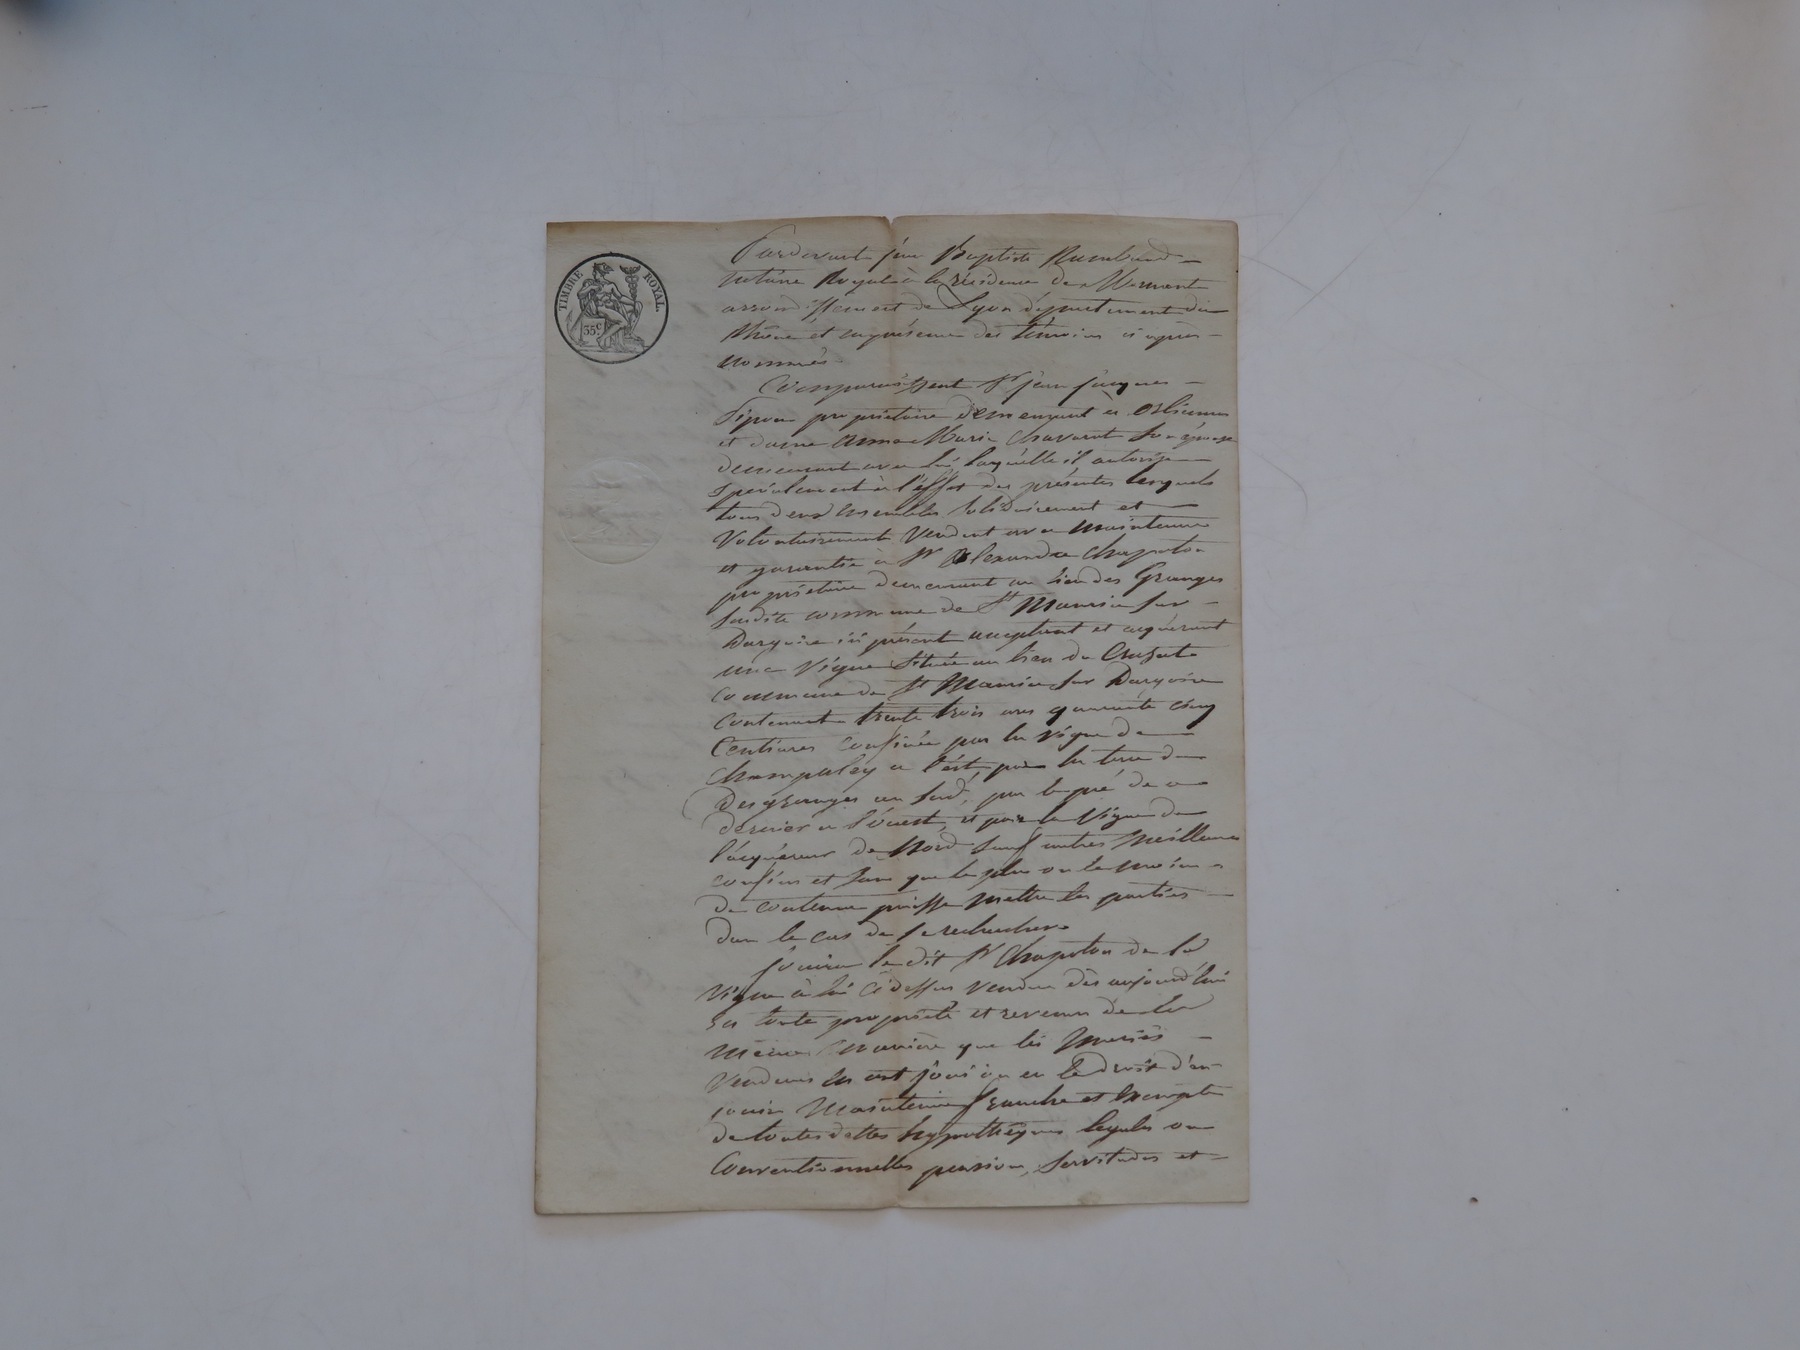 TIMBRE ROYAL
35c.
Pardevant jean Baptiste Rambaud
notaire Royal à la résidence de Mornant
arrondissement de Lyon département du
Rhône et en présence des témoins ci après
nommés
Comparaissent Sr jean jacques
propriétaire demeurant à
et dame Anne Marie Chavant son épouse
demeurant avec lui laquelle il autorise
spécialement à l'effet des présentes lesquels
tous deux ensembles solidairement et
Volontairement Vendent avec maintenue
et garantie à Sr Alexandre Chapoton
propriétaire demeurant au lieu des Granges
susdite commune de St Maurice sur
Dargoire ici présent acceptant et acquérant
une Vigne située au lieu de
commune de St Maurice sur Dargoire
contenant trente trois ares quarante cinq
Centiares confinée par la vigne de
à l'est, par la terre de
Desgranges au sud, par le pré de ce
dernier à l'ouest, et par la vigne de
l'acquéreur de Nord sauf autres meilleurs
confins et sans que le plus ou le moins
de contenue puisse mettre les parties
dans le cas de se rechercher
jouira le dit Sr Chapoton de la
Vigne à lui ci dessus vendue dès aujourd'hui
en toute propriété et revenu de la
même manière que les mariés
Vendeurs en ont joui ou eu le droit d'en
jouir maintenue franche et exempte
de toutes dettes hypothèques légales ou
Conventionnelles pension, servitudes et